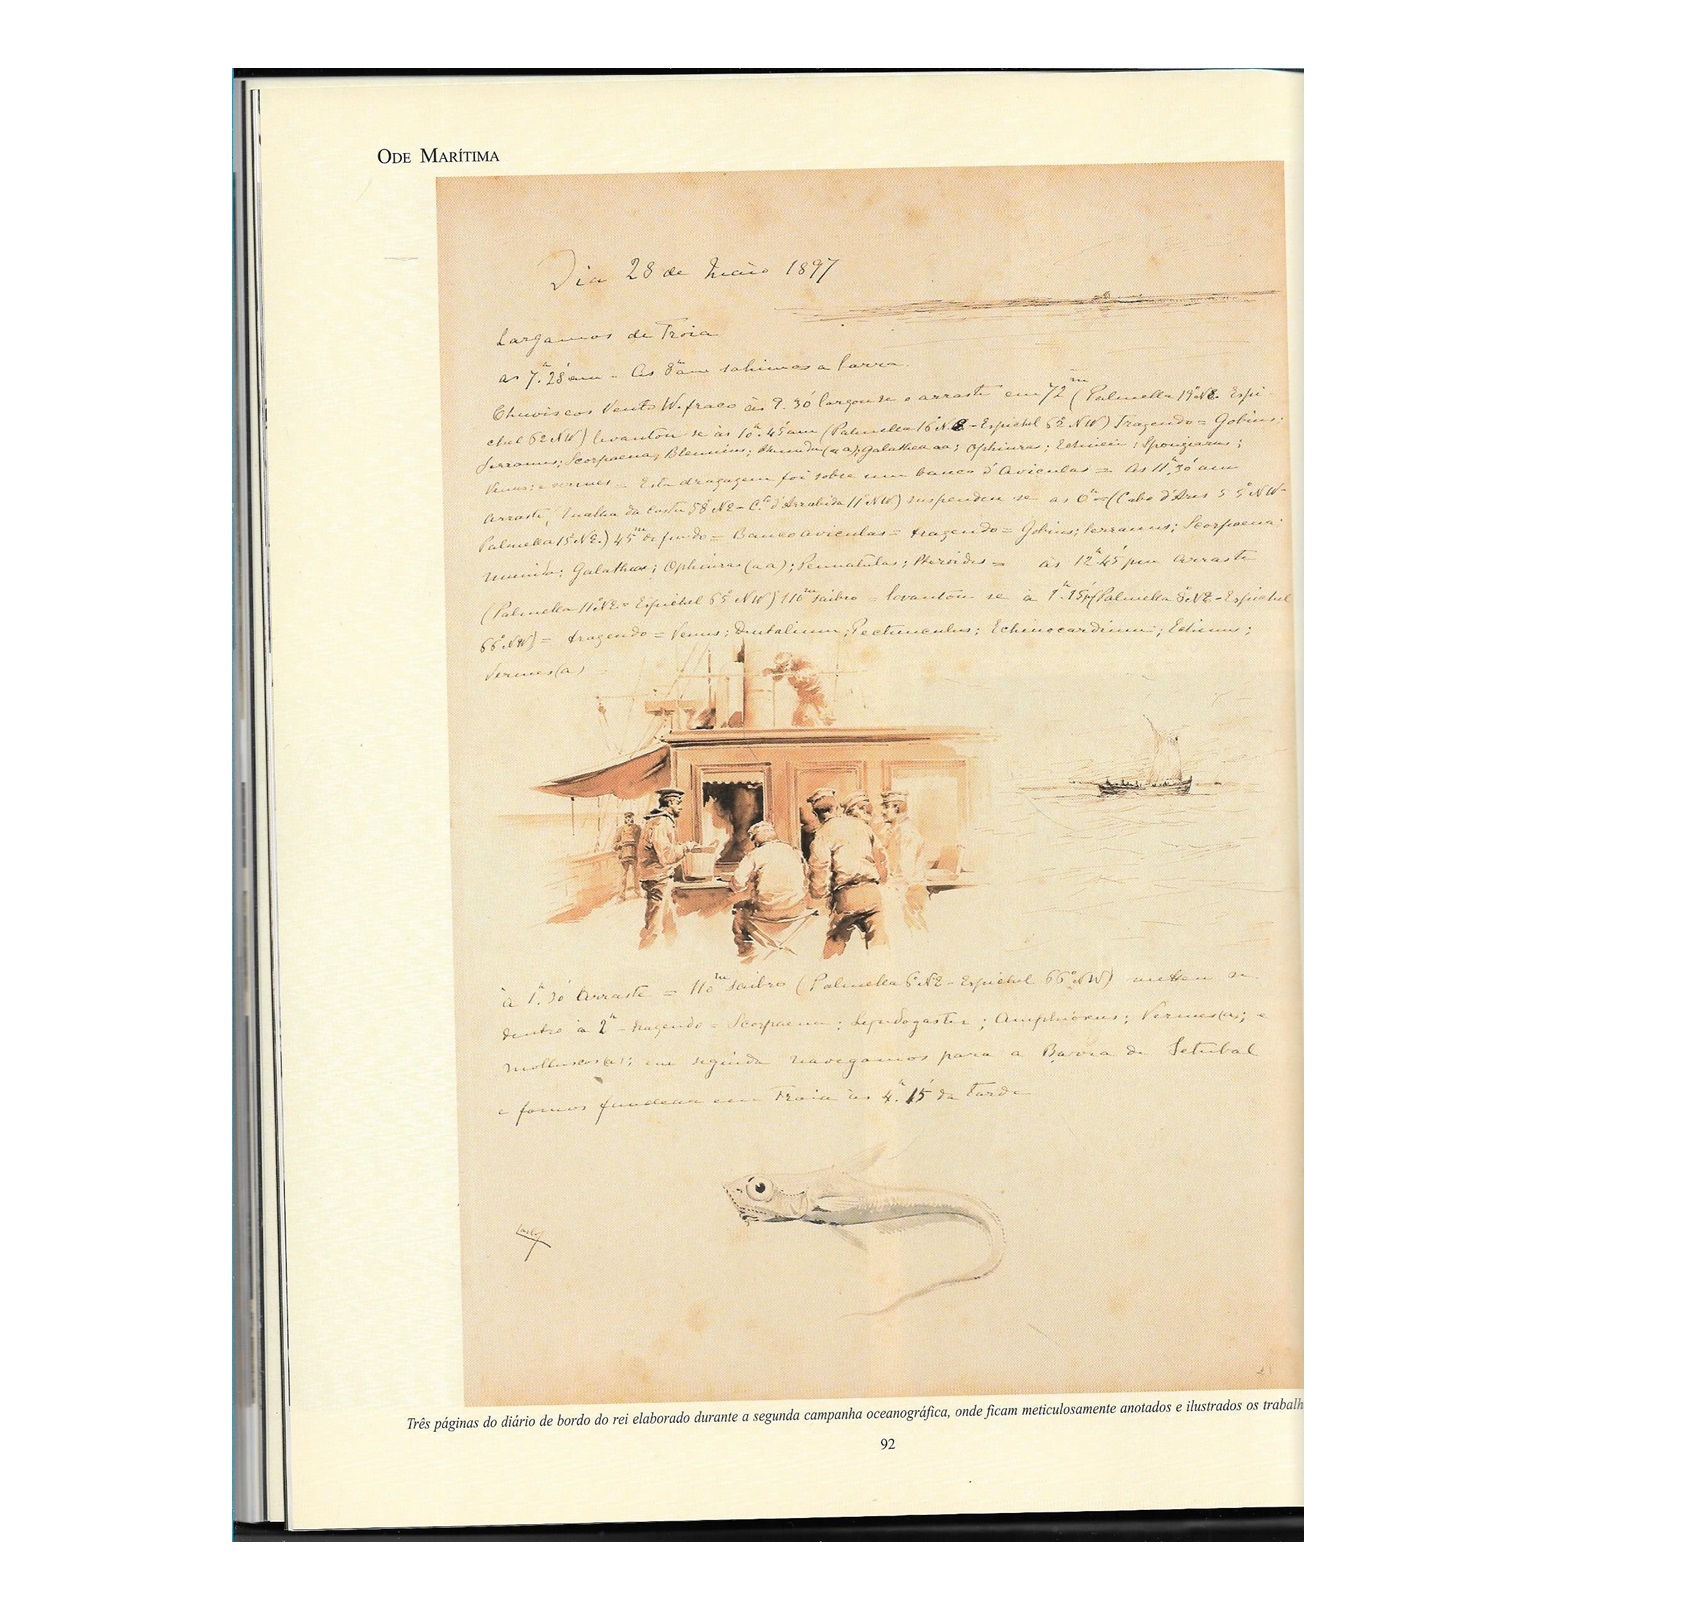 ODE MARÍTIMA
Dia 28 de Maio 1897
Largamos de Troia
as 7.ʰ 28' am - As 8ʰ am sahimos a barra.
Chuviscos Vento W. fraco às 9. 30' largou se o arraste em 72ᵐ (Palmella 19º NE Espi-
chel 62 NW) levantou se às 10ʰ. 45' am (Palmella 16 NE - Espichel 62 NW) Tragendo = Gobius;
Serranus; Scorpaena; Blennius; Munida (aa); Galathea aa; Ophiuras; Echinein; Spongiarus;
Venus; e vermes = Esta dragagem foi sobre um banco d'Aviculas = As 11ʰ.30' am
arraste, (malha da Costa 58º NE - C.º d'Arrabida 11º NW) suspendeu se as 0ʰ = (Cabo d'Ares 5 5º NW-
Palmella 15º NE.) 45ᵐ de fundo = Banco aviculas = tragendo = Gobius; Serranus; Scorpaena;
munida; Galathea; Ophiuras (aa); Pennatulas; Pteroides = às 12ʰ 45' pm arraste
(Palmella 11º NE - Espichel 65º NW) 110ᵐ saibro = levantou se à 1ʰ.15' (Palmella 8º NE - Espichel
66º NW) = tragendo = Venus; Dentalium; Pectunculus; Echinocardium; Echinus;
Vermes (a)
à 1ʰ.30' Arraste = 110ᵐ saibro (Palmella 6º NE - Espichel 66º NW) metteu se
dentro à 2ʰ - tragendo = Scorpaena; Lepadogaster; Amphioxus; Vermes (a); e
molluscos (a); em seguida navegamos para a Barra de Setubal
e fomos fundear em Troia às 4ʰ. 15' da tarde
Três páginas do diário de bordo do rei elaborado durante a segunda campanha oceanográfica, onde ficam meticulosamente anotados e ilustrados os trabalh
92